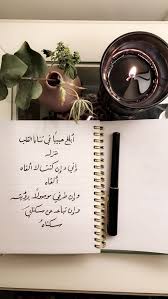 أبلغ حبيبا في ثنايا القلب
منزله
أني وإن كنت لا ألقاه
ألقاه
وإن طرفي موصول برؤيته
وإن تباعد عن سكناي
سكناه